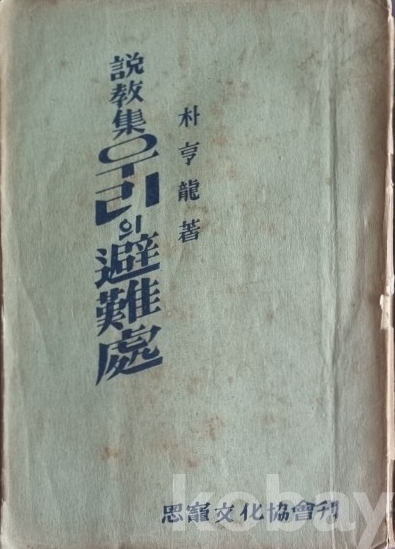 說敎集 우리의 避難處
朴亨龍 著
恩寵文化協會刊
kobay